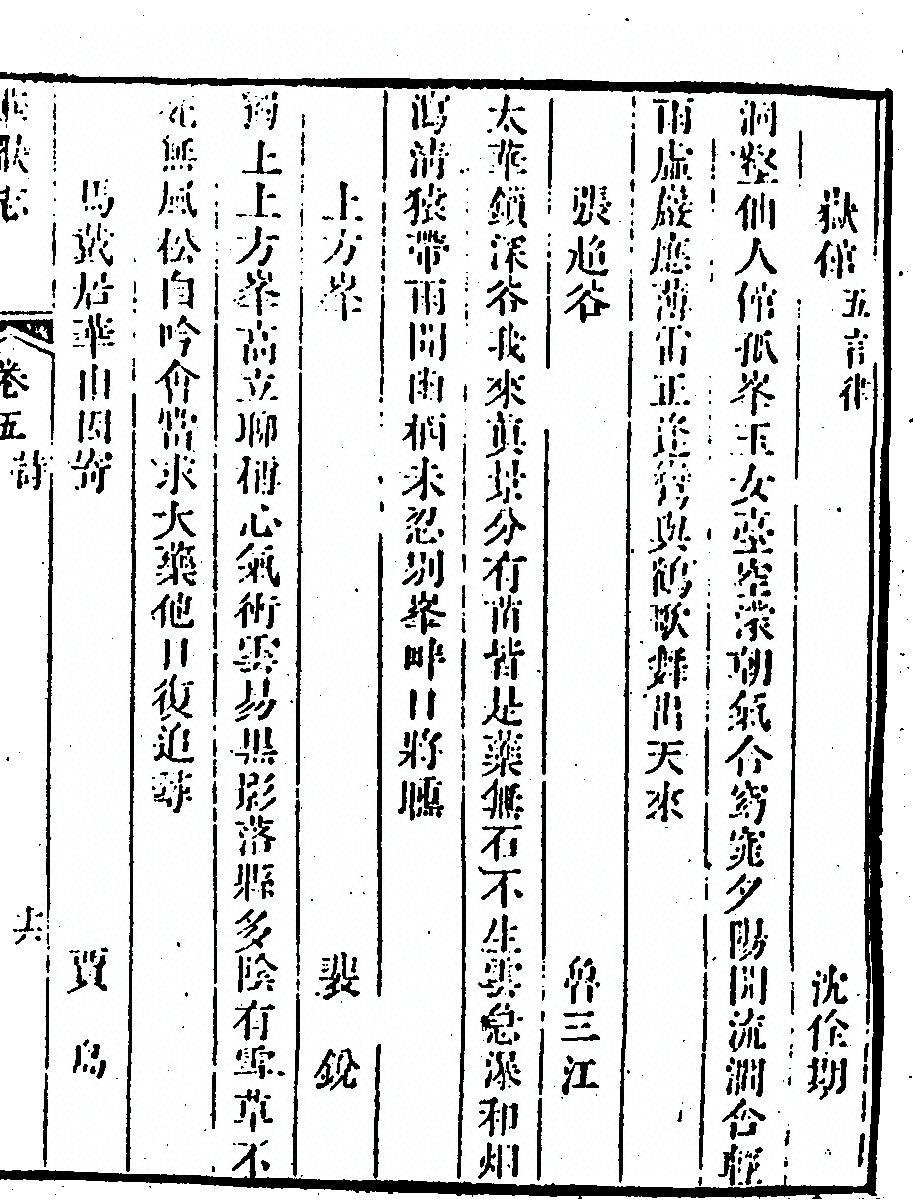 嶽館 五言律 沈佺期
洞壑仙人館孤峯玉女臺空濛朝氣合窈窕夕陽開流澗含輕
雨虛巖應薄雷正逢鸞與鶴歌舞出天來
張超谷 魯三江
太華鎖深谷我來真景分有苗皆是藥無石不生雲急瀑和烟
瀉清猿帶雨聞幽栖未忍別峯畔日將曛
上方峯 裴銳
獨上上方峯高立聊稱心氣術雲易黑影落縣多陰有雪草不
死無風松自吟會當求大藥他日復追尋
馬戴居華山因寄 賈島
華嶽志
卷五 詩